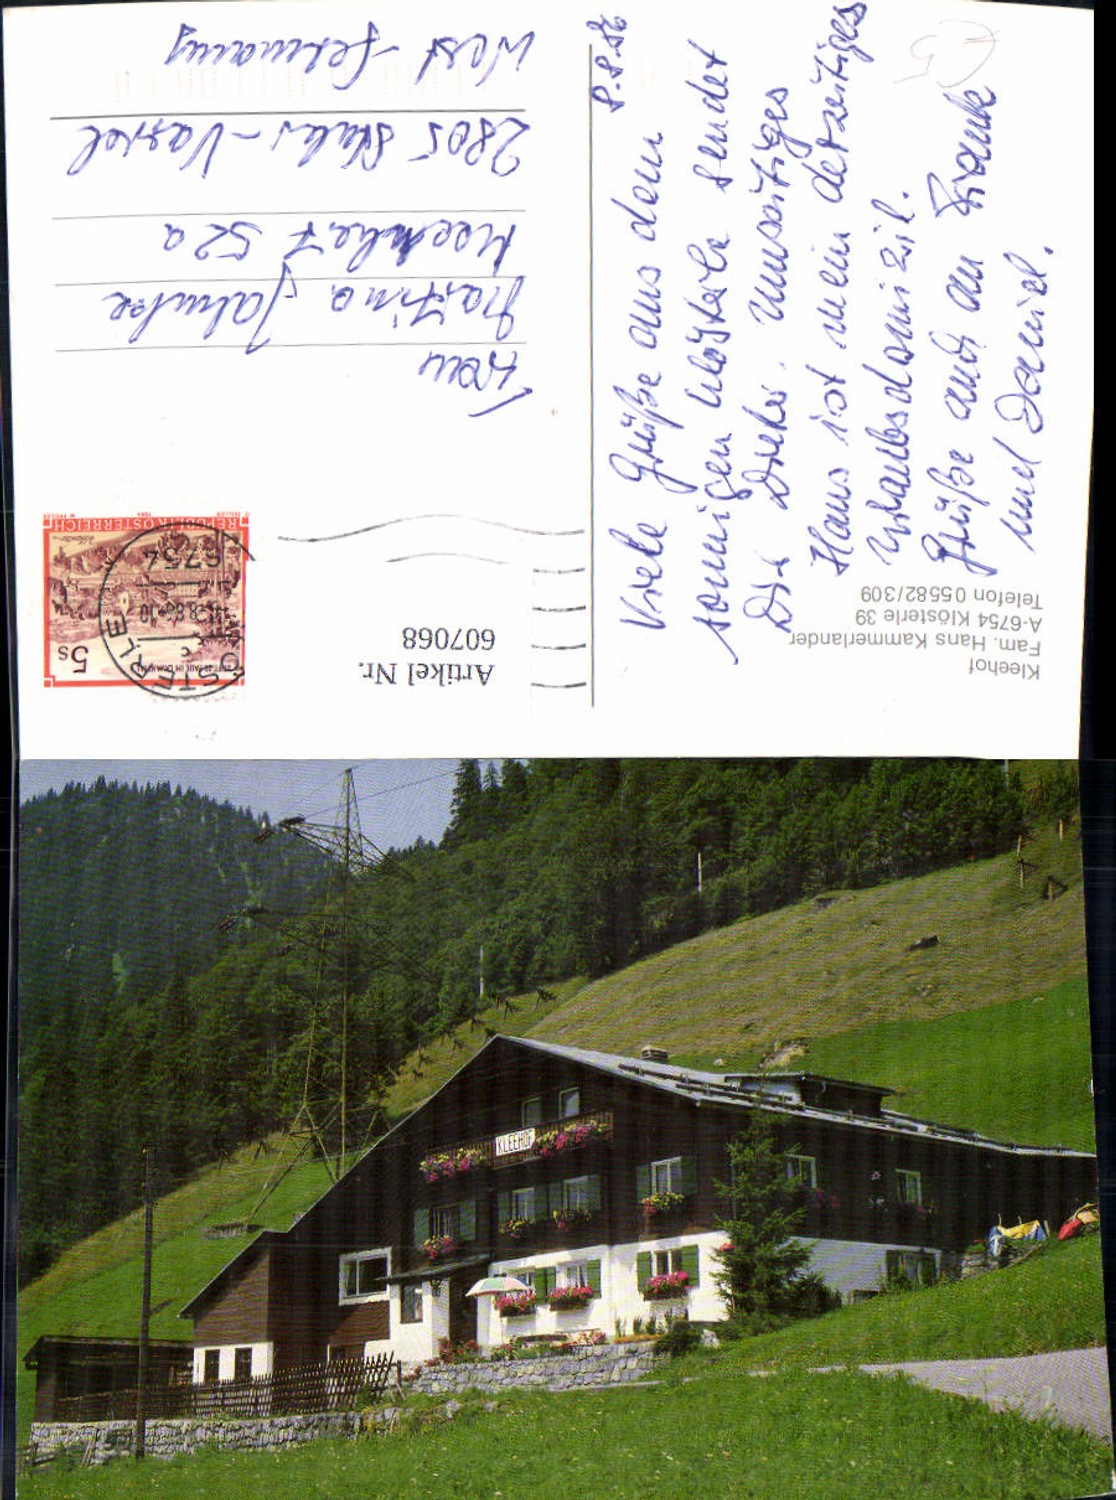 8.8.88
Viele Grüße aus dem
sonnigen Klösterle sendet
Dir Dieter. Umseitiges
Haus ist mein derzeitiges
Urlaubsdomizil.
Grüße auch an Frank
und Daniel.
Kleehof
Fam. Hans Kammerlander
A-6754 Klösterle 39
Telefon 05582/309
Artikel Nr.
607068
5s
REPUBLIK ÖSTERREICH
6754
KLÖSTERLE
Frau
Martina
52a
2805 Stuhr-Varrel
West-Germany
KLEEHOF